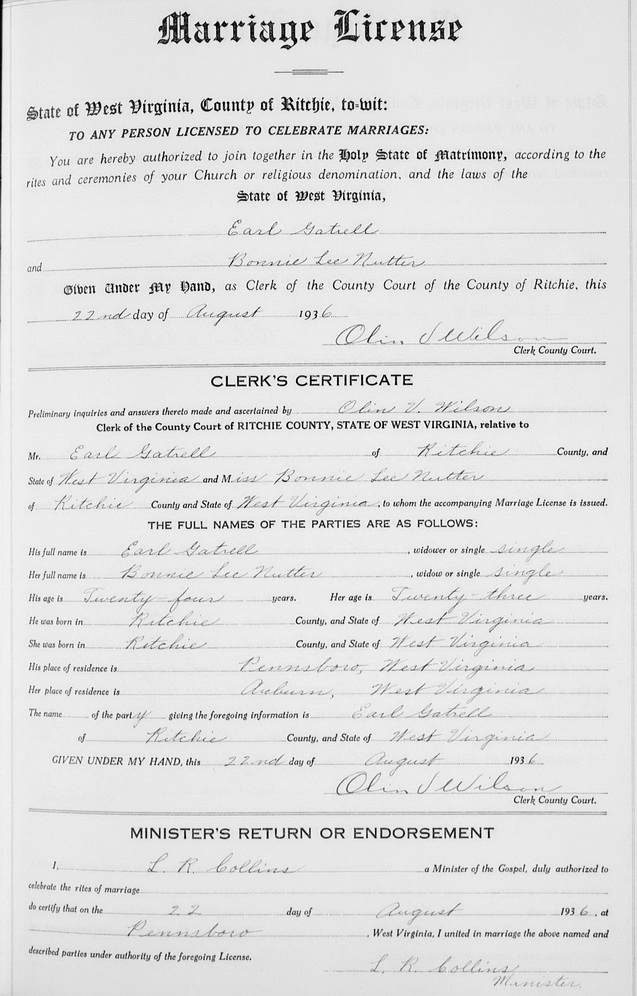 Marriage License
State of West Virginia, County of Ritchie, to-wit:
TO ANY PERSON LICENSED TO CELEBRATE MARRIAGES:
You are hereby authorized to join together in the Holy State of Matrimony, according to the
rites and ceremonies of your Church or religious denomination, and the laws of the
State of West Virginia,
Earl Gatrell
and Bonnie Lee Nutter
Given Under My Hand, as Clerk of the County Court of the County of Ritchie, this
22nd day of August 1936
Olin V Wilson
Clerk County Court.
CLERK'S CERTIFICATE
Preliminary inquiries and answers thereto made and ascertained by Olin V. Wilson
Clerk of the County Court of RITCHIE COUNTY, STATE OF WEST VIRGINIA, relative to
Mr. Earl Gatrell of Ritchie County, and
State of West Virginia and Miss Bonnie Lee Nutter
of Ritchie County and State of West Virginia, to whom the accompanying Marriage License is issued.
THE FULL NAMES OF THE PARTIES ARE AS FOLLOWS:
His full name is Earl Gatrell, widower or single single
Her full name is Bonnie Lee Nutter, widow or single single
His age is Twenty-four years. Her age is Twenty-three years.
He was born in Ritchie County, and State of West Virginia
She was born in Ritchie County, and State of West Virginia
His place of residence is Pennsboro, West Virginia
Her place of residence is Auburn, West Virginia
The name of the party giving the foregoing information is Earl Gatrell
of Ritchie County, and State of West Virginia
GIVEN UNDER MY HAND, this 22nd day of August 1936
Olin V Wilson
Clerk County Court.
MINISTER'S RETURN OR ENDORSEMENT
I, L. R. Collins a Minister of the Gospel, duly authorized to
celebrate the rites of marriage
do certify that on the 22 day of August 1936, at
Pennsboro, West Virginia, I united in marriage the above named and
described parties under authority of the foregoing License.
L. R. Collins
Minister.